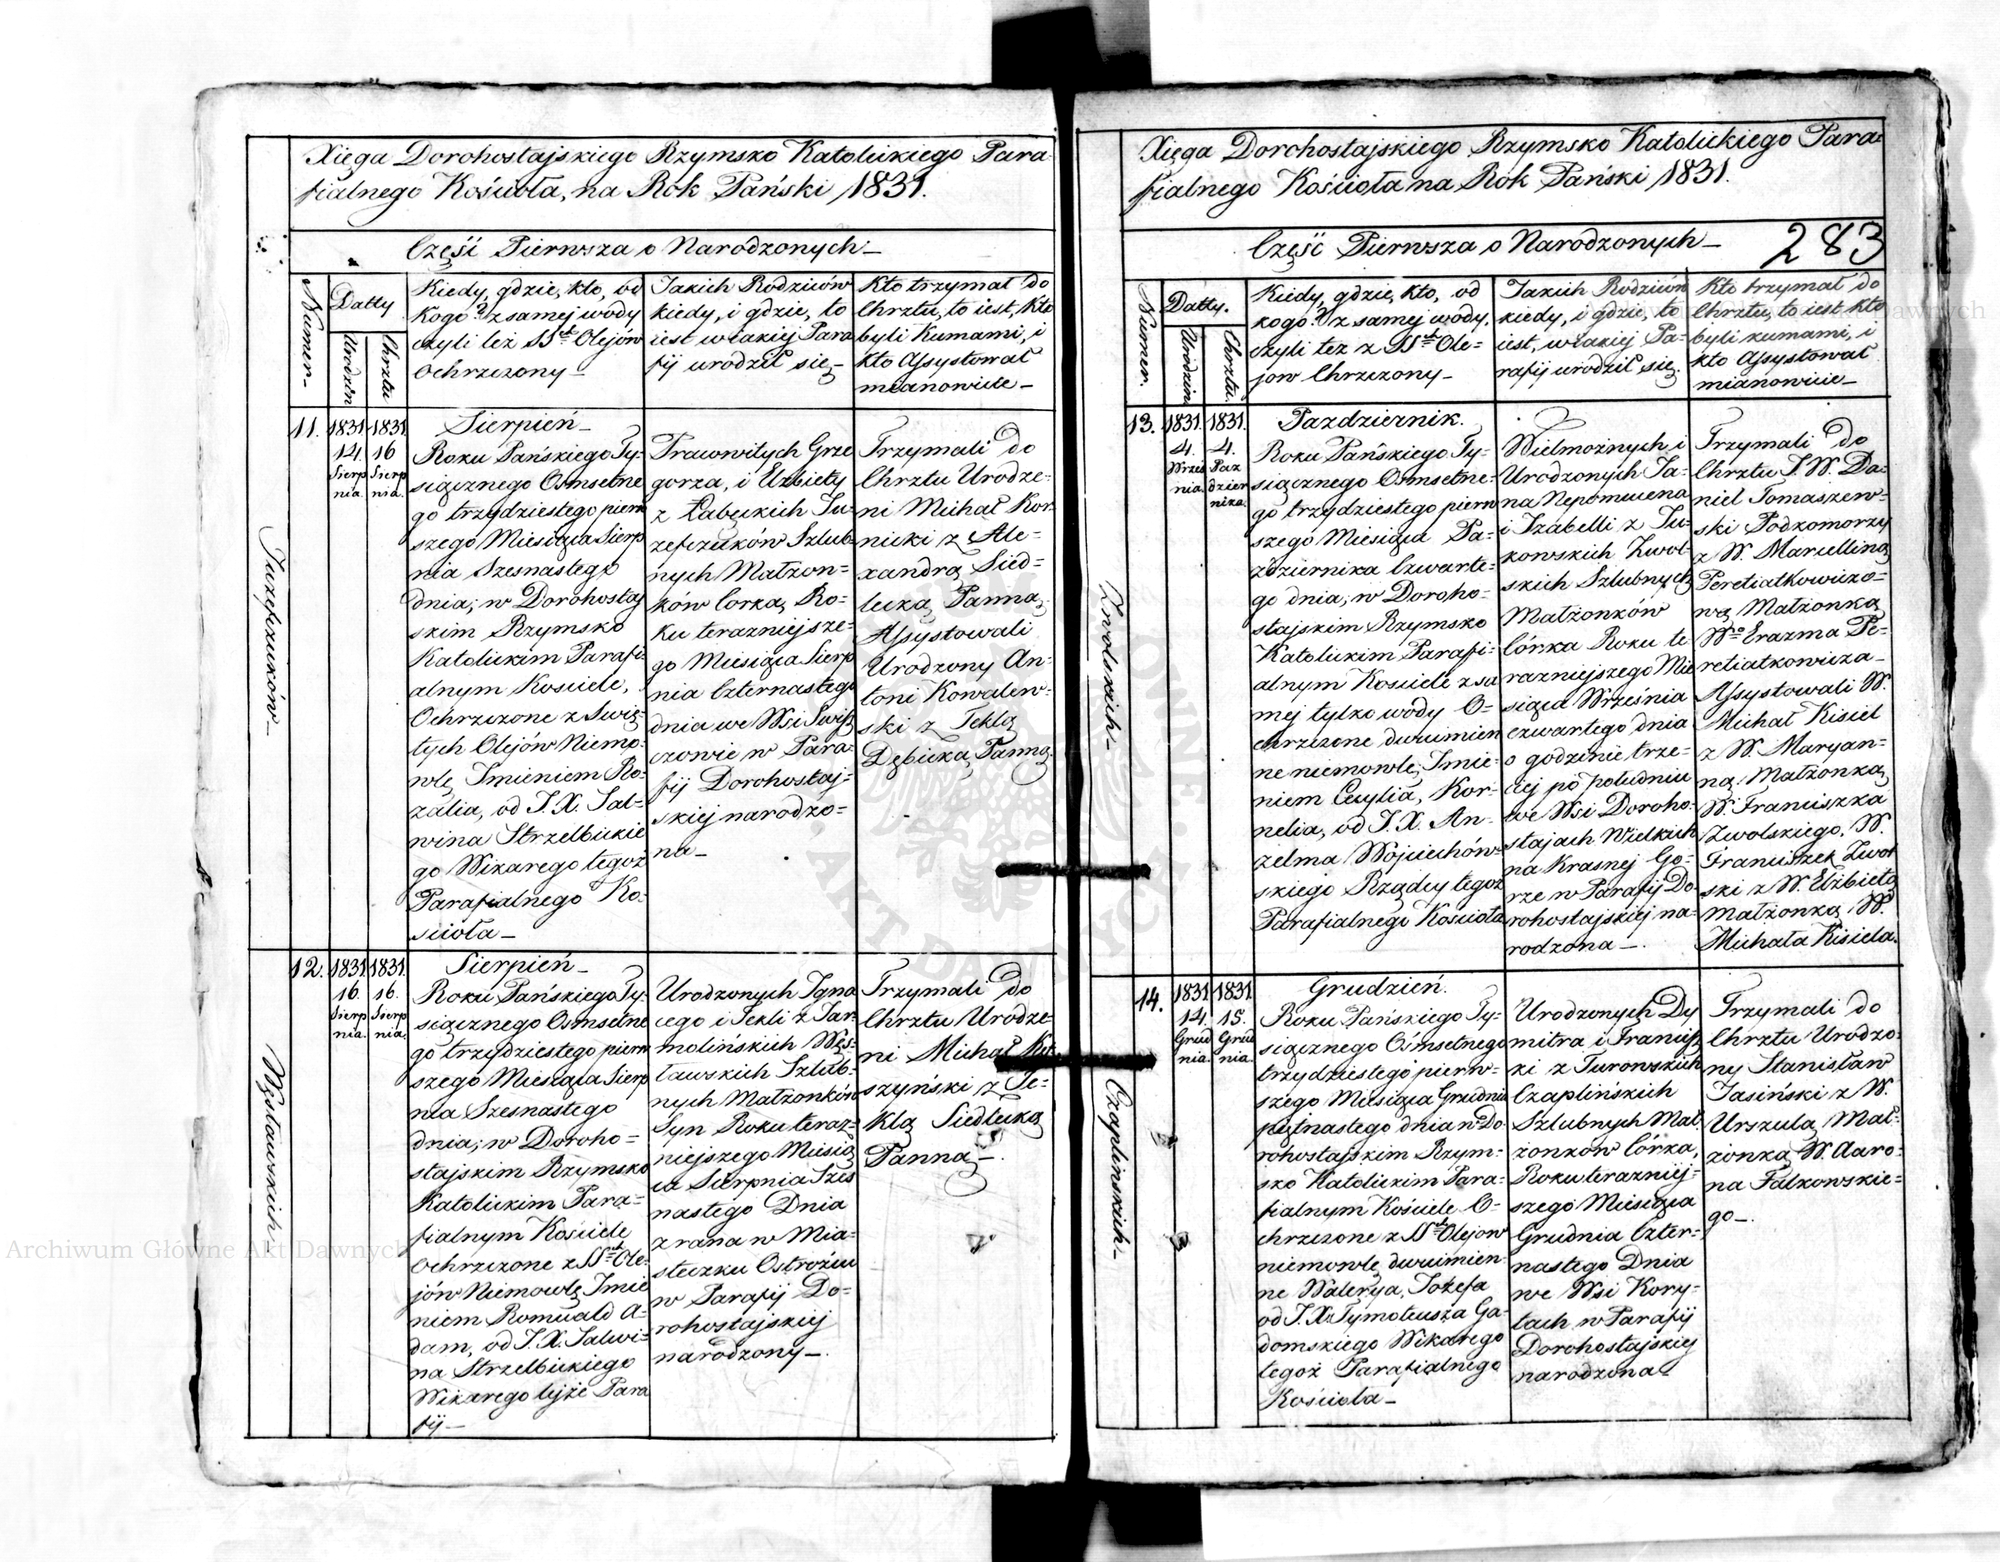 Xięga Dorohostajskiego Rzymsko Katolickiego Para
fialnego Kościoła, na Rok Pański 1831.
Część Pierwsza o Narodzonych
Numer
Datty
Urodzin
Chrztu
Kiedy, gdzie, kto, od
kogo? z samej wody
czyli też SStch Olejów
Ochrzczony
Jakich Rodziców
kiedy, i gdzie, to
iest w iakiej Para
fij urodził się
Kto trzymał do
Chrztu, to iest, kto
byli Kumami, i
kto Assystował
mianowicie
11.
1831
14.
Sierp
nia.
1831
16
Sierp
nia.
Sierpień
Roku Pańskiego Ty-
siącznego Osmsetne
go trzydziestego pierw
szego Miesiąca Sierp
nia Szesnastego
dnia; w Dorohostaj
skim Rzymsko
Katolickim Parafi-
alnym Kościele,
Ochrzczone z Swię-
tych Olejów Niemo-
wlę Jmieniem Ro-
zalia, od J. X. Sal-
wina Strzelbickie
go Wikarego tegoż
Parafialnego Ko-
ścioła
Prawowitych Grze
gorza, i Elzbiety
z Łabęckich Ju-
zefczuków Szlub-
nych Małżon-
ków Corka, Ro-
ku terazniejsze-
go Miesiąca Sierp
nia Czternastego
dnia we Wsi Swisz
czowie w Para-
fij Dorohostaj-
skiej narodzo-
na
Trzymali do
Chrztu Urodze-
ni Michał Kor-
nicki z Ale-
xandrą Sied-
lecką Panną,
Assystowali
Urodzony An-
toni Kowalew-
ski z Teklą
Dębicką Panną.
Juzefczuków
12.
1831
16.
Sierp
nia.
1831.
16.
Sierp
nia.
Sierpień
Roku Pańskiego Ty-
siącznego Osmsetne
go trzydziestego pierw
szego Miesiąca Sierp
nia Szesnastego
dnia; w Doroho-
stajskim Rzymsko
Katolickim Para-
fialnym Kościele
Ochrzczone z SStch Ole-
jów Niemowlę Jmie
niem Romuald A-
dam, od J. X. Salwi-
na Strzelbickiego
Wikarego tejże Para
fij
Urodzonych Igna
cego i Tekli z Jar-
molińskich Węs-
ławskich Szlub-
nych Małżonków
Syn Roku teraz-
niejszego Miesią
ca Sierpnia Szes
nastego Dnia
z rana w Mia-
steczku Ostrożcu
w Parafij Do-
rohostajskiej
narodzony
Trzymali do
Chrztu Urodze-
ni Michał
szyński z Te-
klą Siedlecką
Panną
Węsławskich
Xięga Dorohostajskiego Rzymsko Katolickiego Para-
fialnego Kościoła na Rok Pański 1831.
Część Pierwsza o Narodzonych
283
Numer.
Datty.
Urodzin
Chrztu.
Kiedy, gdzie, kto, od
kogo? z samej wody,
czyli też z SStch Ole-
jow Chrzczony
Jakich Rodziców
kiedy, i gdzie, to
iest, w iakiej Pa-
rafij urodził się.
Kto trzymał do
Chrztu, to iest kto
byli kumami, i
kto Assystował
mianowicie
13.
1831.
4.
Wrześ
nia.
1831.
4.
Paz
dzier
nika.
Pazdziernik.
Roku Pańskiego Ty-
siącznego Osmsetne-
go trzydziestego pierw
szego Miesiąca Pa-
zdziernika Czwarte-
go dnia; w Doroho-
stajskim Rzymsko
Katolickim Parafi-
alnym Kościele z sa
mej tylko wody O-
chrzczone dwuimien
ne niemowlę, Jmie-
niem Cecylia, Kor-
nelia, od J. X. An-
zelma Wojciechów-
skiego Rządcy tegoż
Parafialnego Kościoła
Wielmożnych i
Urodzonych Ja-
na Nepomucena
i Izabelli z Ju-
kowskich Zwol-
skich Szlubnych
Małżonków
Córka Roku te
razniejszego Mie
siąca Września
czwartego dnia
o godzinie trze-
ciej po południu
we Wsi Doroho-
stajach Wielkich
na Krasnej Go-
rze w Parafij Do-
rohostajskiej na-
rodzona
Trzymali do
Chrztu J. W. Da-
niel Tomaszew-
ski Podkomorzy
z W. Marcelliną
Peretiatkowiczo-
wą Małżonką
Wgo Erazma Pe-
retiatkowicza
Assystowali W.
Michał Kisiel
z W. Maryan-
ną Małżonką
W. Franciszka
Zwolskiego, W.
Franciszek Zwol
ski z W. Elżbietą
małżonką W.
Michała Kisiela.
Zwolskich
14.
1831
14.
Grud
nia.
1831
15.
Grud
nia.
Grudzień.
Roku Pańskiego Ty-
siącznego Osmsetnego
trzydziestego pierw-
szego Miesiąca Grudnia
piętnastego dnia w Do
rohostajskim Rzym-
sko Katolickim Para-
fialnym Kościele O-
chrzczone z SStch Olejow
niemowlę dwuimien
ne Walerya, Jozefa
od J. X. Tymoteusza Ga-
domskiego Wikarego
tegoż Parafialnego
Kościoła
Urodzonych Dy
mitra i Francisz
ki z Turowskich
Czaplińskich
Szlubnych Mał
żonków Córka,
Roku terazniej-
szego Miesiąca
Grudnia Czter-
nastego Dnia
we Wsi Kory-
tach w Parafij
Dorohostajskiej
narodzona
Trzymali do
Chrztu Urodzo-
ny Stanisław
Jasiński z W.
Urszulą Mał-
żonką W. Aaro-
na Falkowskie-
go
Czaplińskich
Archiwum Główne Akt Dawnych